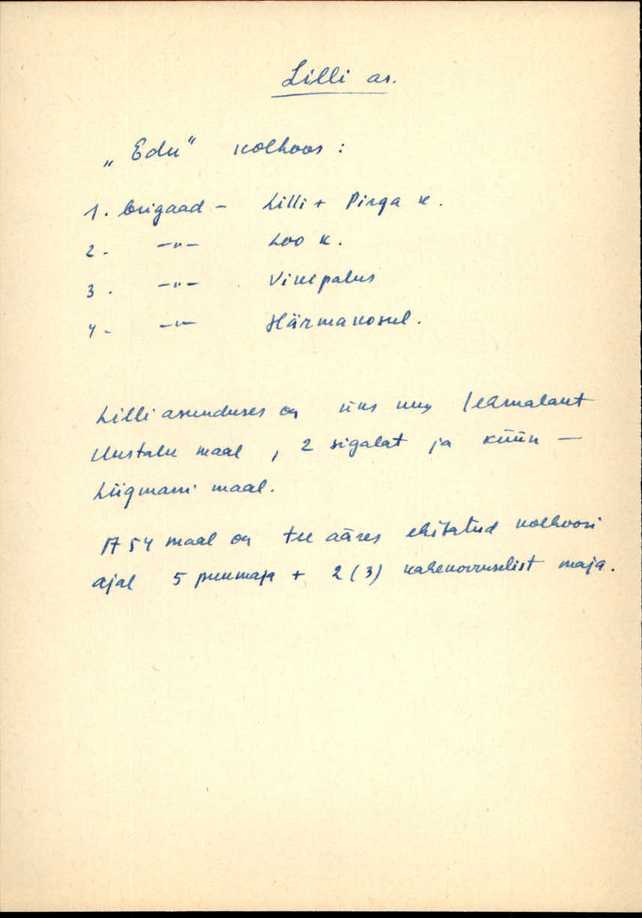 Lilli as.
„Edu" kolhoos:
1. brigaad - Lilli + Pirga k.
2. -"- Loo k.
3. -"- Vikipalus
4. -"- Härmakosul.
Lilli asunduses on üks uus lehmalaut
Uustalu maal, 2 sigalat ja küün -
Liigmani maal.
A 54 maal on tee ääres ehitatud kolhoosi
ajal 5 puumaja + 2(3) kahekorruselist maja.